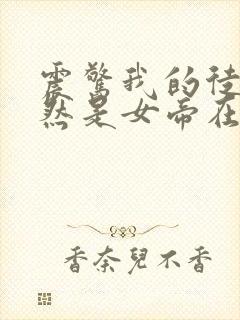 震驚我的徒
然是女帝在
香奈兒不香